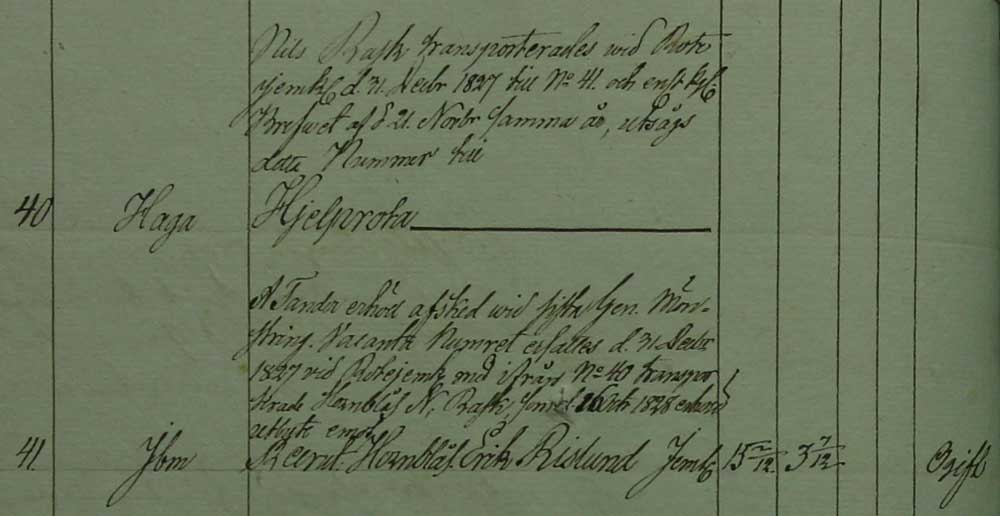 Nils Rask transporterades wid Rote
jemk d. 31. Decbr 1827 till No 41. och enl.
Brefwet af d 21. Novbr samma år, utsågs
detta Nummer till
40 Haga Hjelprota
A Tanda erhöll afsked wid sista Gen. Mön-
string. Vacanta Numret ersattes d. 31 Decbr
1827 vid Rotejemk med ifrån No 40 transpor
terade Hornblås N. Rask, som d 16 Octr 1828 erhöll
utbyte emot
41 Jbm Recrut. Hornblås. Erik Rislund Jemtl 15 2/12 3 7/12 Ogift